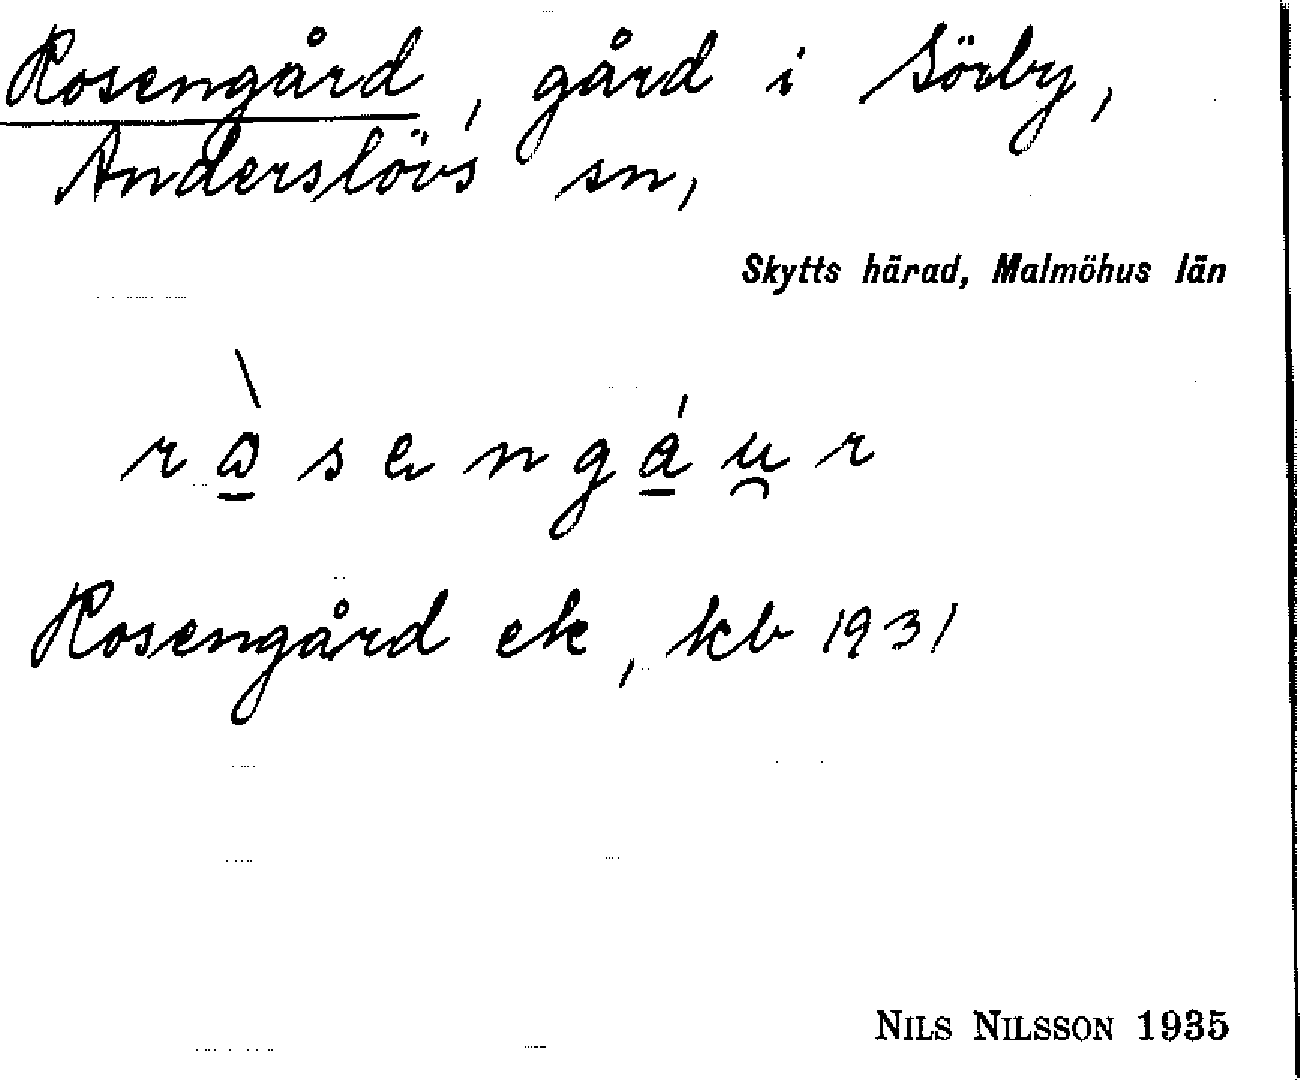 Rosengård, gård i Sörby,
Anderslövs sn,
Skytts härad, Malmöhus län
Rosengård ek, kb 1931
NILS NILSSON 1935